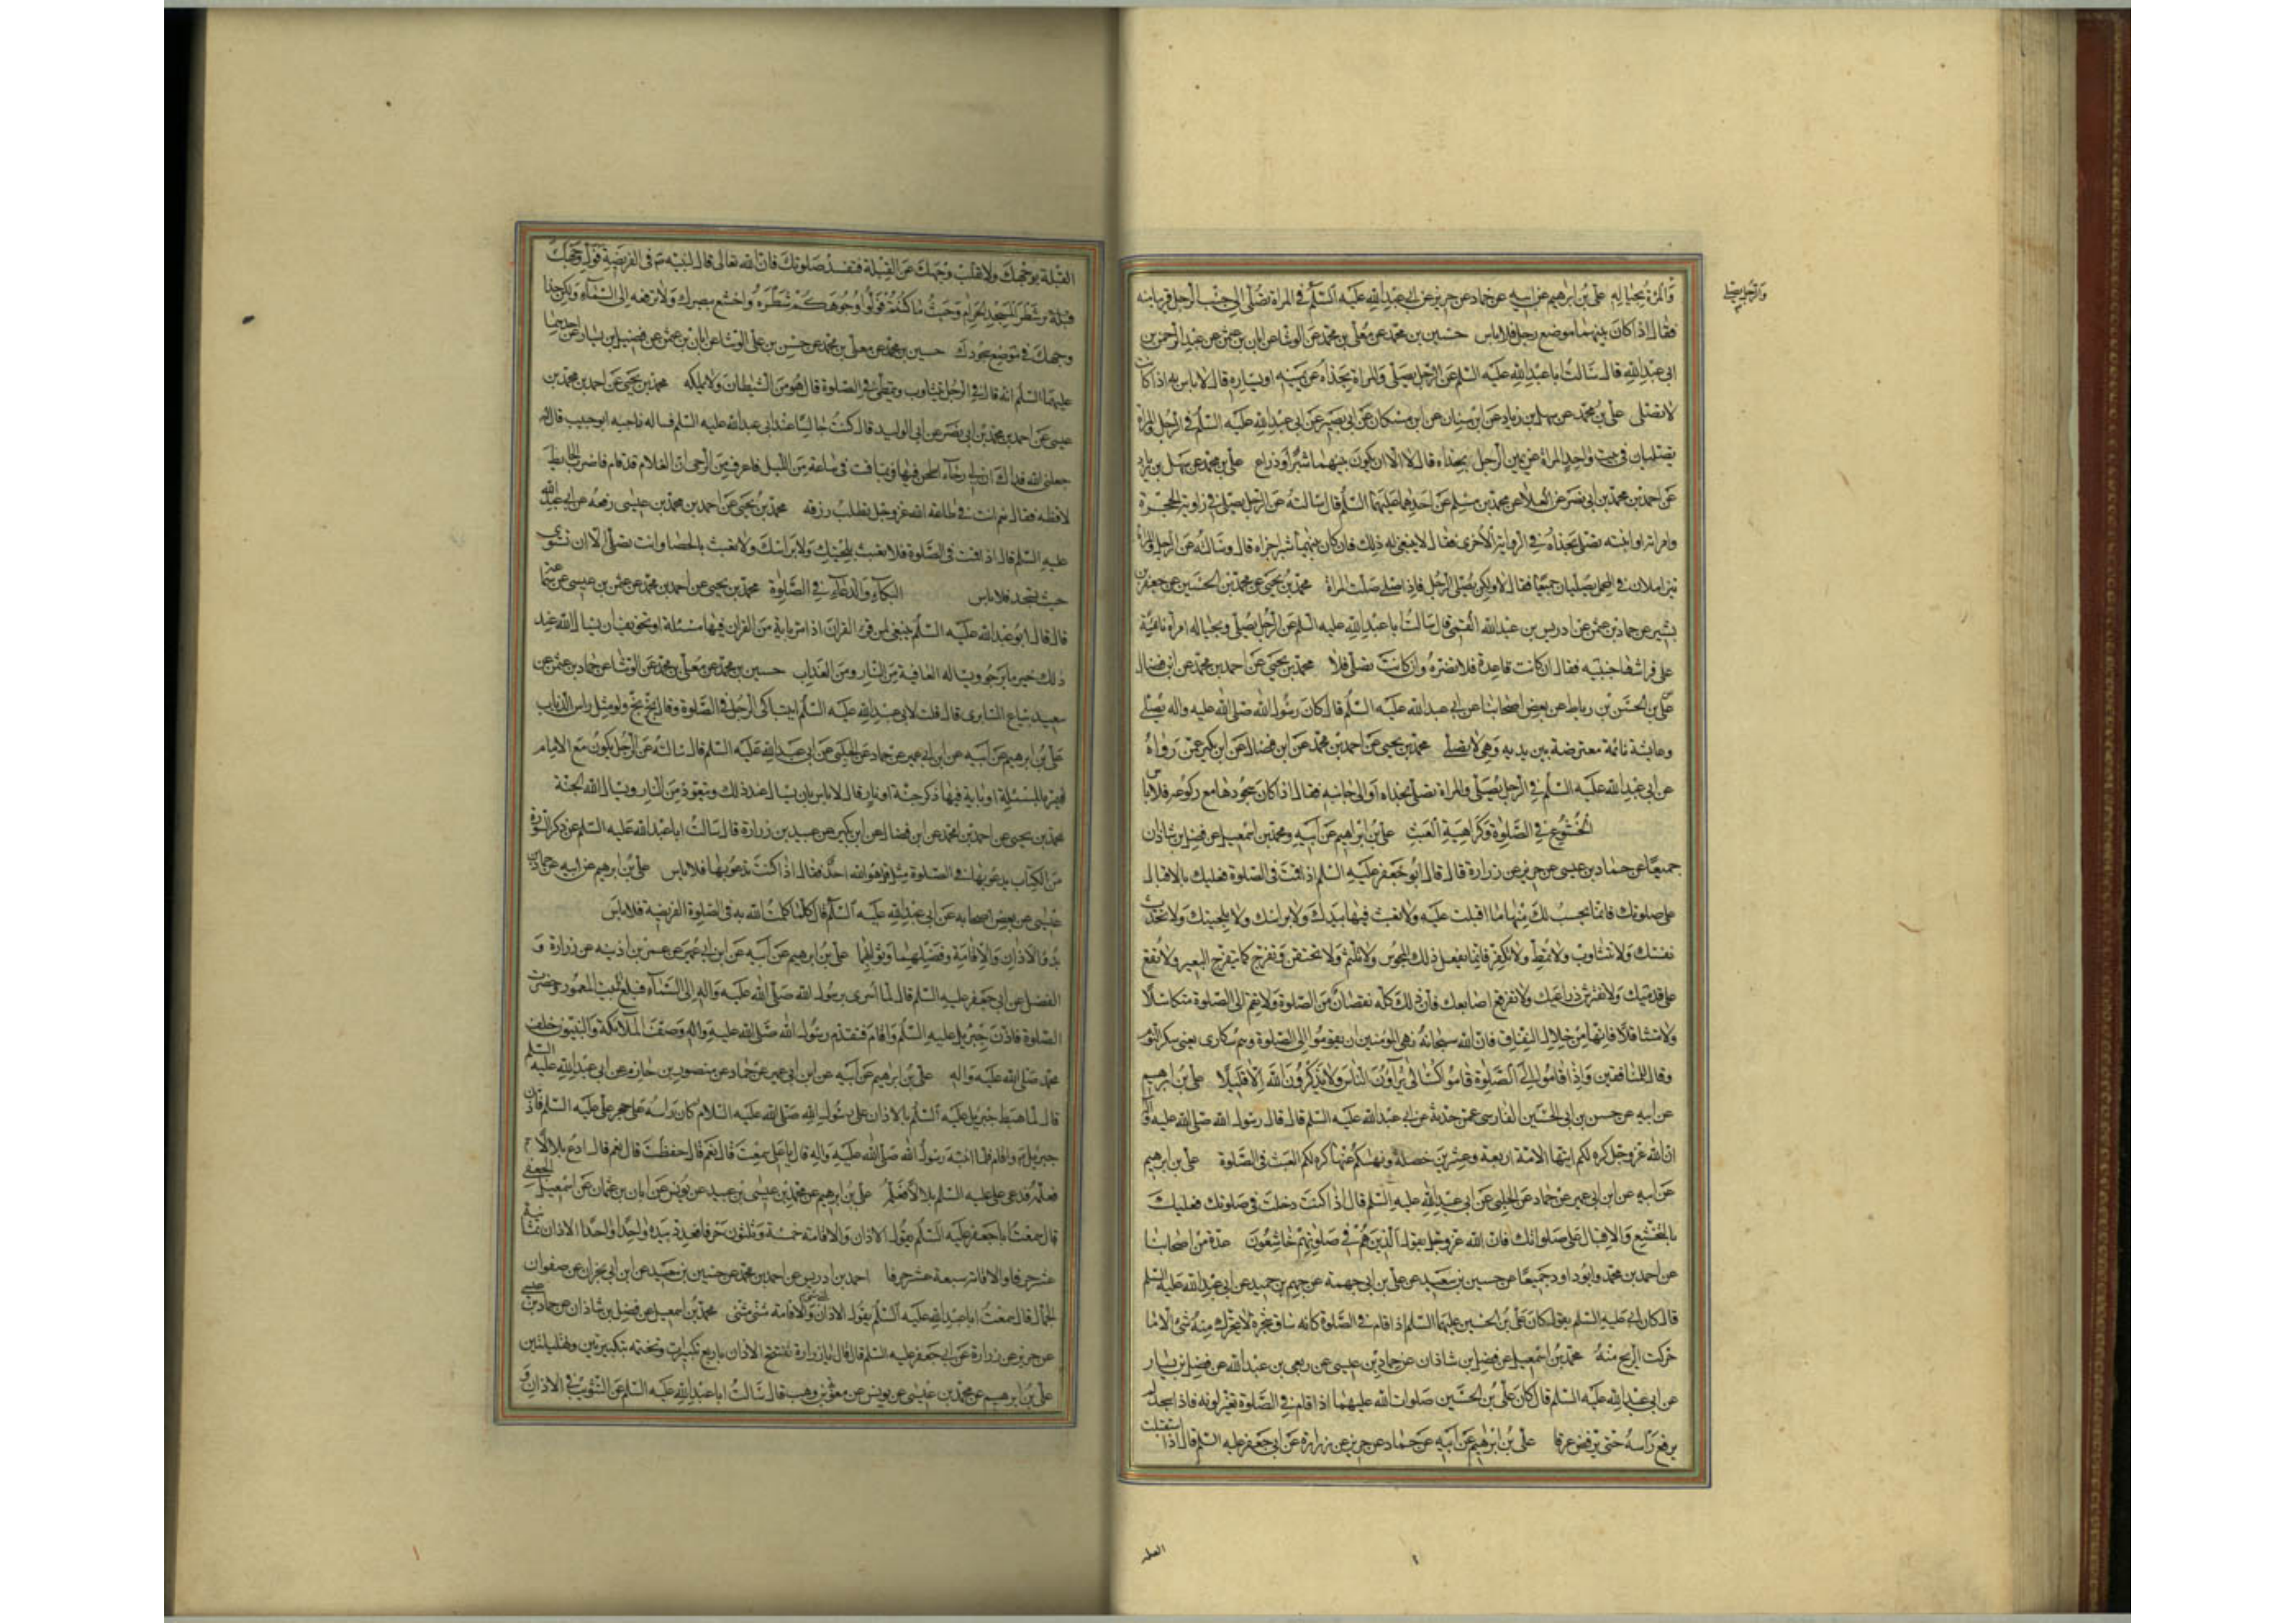 والمرأة بحياله علي بن ابرهيم عن ابيه عن حماد عن حريز عن ابي عبدالله عليه السلم في المراة تصلي الى جنب الرجل قريبا منه
فقال اذا كان بينهما موضع رجل فلا باس حسين بن محمد عن معلى بن محمد عن الوشا عن ابان بن عثمن عن عبد الرحمن بن
ابي عبدالله قال سالت ابا عبدالله عليه السلم عن الرجل يصلي والمراة بحذاه عن يمينه او يساره قال لا باس به اذا كانت
لا تصلي علي بن محمد عن سهل بن زياد عن ابن سنان عن ابن مسكان عن ابي بصير عن ابي عبدالله عليه السلم في الرجل والمراة
يصليان في بيت واحد المراة عن يمين الرجل بحذاه قال لا الا ان يكون بينهما شبر او ذراع علي بن محمد عن سهل بن زياد
عن احمد بن محمد بن ابي نصر عن العلا عن محمد بن مسلم عن احدهما عليهما السلم قال سالته عن الرجل يصلي في زاوية الحجرة
وامراته او ابنته تصلي بحذاه في الزواية الاخرى فقال لا ينبغي له ذلك فان كان بينهما شبر اجزاه قال وسالته عن الرجل والمراة
يتزاملان في المحمل يصليان جميعا فقال لا ولكن يصلي الرجل فاذا صلى صلت المراة محمد بن يحيى عن محمد بن الحسين عن جعفر بن
بشير عن حماد بن عثمن عن ادريس بن عبدالله القمي قال سالت ابا عبدالله عليه السلم عن الرجل يصلي وبحياله امراة نائمة
على فراشها جنبه فقال ان كانت قاعدة فلا تضره وان كانت تصلي فلا محمد بن يحيى عن احمد بن محمد عن ابن فضال
عن علي بن الحسن بن رباط عن بعض اصحابنا عن ابي عبدالله عليه السلم قال كان رسول الله صلى الله عليه واله يصلي
وعايشة نائمة معترضة بين يديه وهي لا تصلي محمد بن يحيى عن احمد بن محمد عن ابن فضال عن ابن بكير عمن رواه
عن ابي عبدالله عليه السلم في الرجل يصلي والمراة تصلي بحذاه او الى جانبه فقال اذا كان سجودها مع ركوعه فلا باس
الخشوع في الصلوة وكراهية العبث علي بن ابراهيم عن ابيه ومحمد بن اسمعيل عن فضل بن شاذان
جميعا عن حماد بن عيسى عن حريز عن زرارة قال قال ابو جعفر عليه السلم اذا قمت في الصلوة فعليك بالاقبال
على صلوتك فانما يحسب لك منها ما اقبلت عليه ولا تعبث فيها بيدك ولا براسك ولا بلحيتك ولا تحدث
نفسك ولا تتثاوب ولا تمط ولا تكفر فانما يفعل ذلك المجوس ولا تلثم ولا تحتقن وتفرج كما يتفرج البعير ولا تقع
على قدميك ولا تفترش ذراعيك ولا تفرقع اصابعك فان ذلك كله نقصان من الصلوة ولا تقم الى الصلوة متكاسلا
ولا متثاقلا فانها من خلال النفاق فان الله سبحانه نهى المؤمنين ان يقوموا الى الصلوة وهم سكارى يعني سكر النوم
وقال للمنافقين واذا قاموا الى الصلوة قاموا كسالى يراؤن الناس ولا يذكرون الله الا قليلا علي بن ابرهيم
عن ابيه عن حسن بن ابي الحسين الفارسي عمن حدثه عن ابي عبدالله عليه السلم قال قال رسول الله صلى الله عليه واله
ان الله عز وجل كره لكم ايتها الامة اربعة وعشرين خصلة ونهيكم عنها كره لكم العبث في الصلوة علي بن ابرهيم
عن ابيه عن ابن ابي عمير عن حماد عن الحلبي عن ابي عبدالله عليه السلم قال اذا كنت دخلت في صلوتك فعليك
بالتخشع والاقبال على صلوتك فان الله عز وجل يقول الذين هم في صلوتهم خاشعون عدة من اصحابنا
عن احمد بن محمد وابو داود جميعا عن حسين بن سعيد عن علي بن ابي جهمة عن جهم بن حميد عن ابي عبدالله عليه السلم
قال كان ابي عليه السلم يقول كان علي بن الحسين عليهما السلم اذا قام في الصلوة كانه ساق شجرة لا يتحرك منه شئ الا ما
حركت الريح منه محمد بن اسمعيل عن فضل بن شاذان عن حماد بن عيسى عن ربعي بن عبدالله عن فضيل بن يسار
عن ابي عبدالله عليه السلم قال كان علي بن الحسين صلوات الله عليهما اذا قام في الصلوة تغير لونه فاذا سجد لم
يرفع راسه حتى يرفض عرقا علي بن ابرهيم عن ابيه عن حماد عن حريز عن زرارة عن ابي جعفر عليه السلم قال اذا استقبلت
والرجل يصلي
القبلة
القبلة بوجهك ولا تقلب وجهك عن القبلة فتفسد صلوتك فان الله تعالى قال لنبيه في الفريضة فول وجهك
شطر المسجد الحرام وحيث ما كنتم فولوا وجوهكم شطره واخشع ببصرك ولا ترفعه الى السماء وليكن حذا
وجهك في موضع سجودك حسين بن محمد عن معلى بن محمد عن حسن بن علي الوشا عن ابان بن عثمن عن فضيل بن يسار عن احدهما
عليهما السلم انه قال في الرجل يتثاوب ويتمطى في الصلوة قال هو من الشيطان ولا يملكه محمد بن يحيى عن احمد بن محمد بن
عيسى عن احمد بن محمد بن ابي نصر عن ابي الوليد قال كنت جالسا عند ابي عبدالله عليه السلم فساله ناجيه ابو حبيب فقال له
جعلني الله فداك ان لي رحاء اطحن فيها فربما قمت في ساعة من الليل فاعرف من الرحى ان الغلام قد نام فاضرب الحايط
لاوقظه فقال نعم انت في طاعة الله عز وجل تطلب رزقه محمد بن يحيى عن احمد بن محمد بن عيسى رفعه عن ابي عبدالله
عليه السلم قال اذا قمت في الصلوة فلا تعبث بلحيتك ولا براسك ولا تعبث بالحصا وانت تصلي الا ان تسوي
حيث تسجد فلا باس البكاء والدعاء في الصلوة محمد بن يحيى عن احمد بن محمد عن عثمن بن عيسى عن سماعة
قال قال ابو عبدالله عليه السلم ينبغي لمن قرء القران اذا مر باية من القران فيها مسئلة او تخويف ان يسال الله عند
ذلك خير ما يرجو ويساله العافية من النار ومن العذاب حسين بن محمد عن معلى بن محمد عن الوشا عن حماد بن عثمن عن
سعيد بياع السابري قال قلت لابي عبدالله عليه السلم ايتباكى الرجل في الصلوة وقال بخ بخ ولو مثل راس الذباب
علي بن ابرهيم عن ابيه عن ابن ابي عمير عن حماد عن الحلبي عن ابي عبدالله عليه السلم قال سالته عن الرجل يكون مع الامام
فيمر بالمسئلة او باية فيها ذكر جنة او نار قال لا باس بان يسال عند ذلك ويتعوذ من النار ويسال الله الجنة
محمد بن يحيى عن احمد بن محمد عن ابن فضال عن ابن بكير عن عبيد بن زرارة قال سالت ابا عبدالله عليه السلم عن ذكر السورة
من الكتاب يدعو بها في الصلوة مثل قل هو الله احد فقال اذا كنت تدعو بها فلا باس علي بن ابرهيم عن ابيه عن حماد بن
عيسى عن بعض اصحابه عن ابي عبدالله عليه السلم قال كلما كلمت الله به في الصلوة الفريضة فلا باس
بدؤ الاذان والاقامة وفضيلهما وثوابهما علي بن ابرهيم عن ابيه عن ابن ابي عمير عن عمر بن اذينه عن زرارة و
الفضل عن ابي جعفر عليه السلم قال لما اسرى برسول الله صلى الله عليه واله الى السماء فبلغ البيت المعمور وحضرت
الصلوة فاذن جبريل عليه السلم واقام فتقدم رسول الله صلى الله عليه واله وصف الملائكة والنبيون خلف
محمد صلى الله عليه واله علي بن ابرهيم عن ابيه عن ابن ابي عمير عن حماد عن منصور بن حازم عن ابي عبدالله عليه السلم
قال لما هبط جبريل عليه السلم بالاذان على رسول الله صلى الله عليه السلام كان راسه على حجر علي عليه السلم فاذن
جبريل واقام فلما انتبه رسول الله صلى الله عليه واله قال يا علي سمعت قال نعم قال حفظت قال نعم قال ادع بلالا
فعلمه فدعى علي عليه السلم بلالا فعلمه علي بن ابرهيم عن محمد بن عيسى بن عبيد عن يونس عن ابان بن عثمان عن اسمعيل الجعفي
قال سمعت ابا جعفر عليه السلم يقول الاذان والاقامة خمسة وثلثون حرفا فعد ذ بيده واحدا واحدا الاذان ثمانية
عشر حرفا والاقامة سبعة عشر حرفا احمد بن ادريس عن احمد بن محمد عن حسين بن سعيد عن ابن ابي نجران عن صفوان
الجمال قال سمعت ابا عبدالله عليه السلم يقول الاذان والاقامة مثنى مثنى محمد بن اسمعيل عن فضل بن شاذان عن حماد بن عيسى
عن حريز عن زرارة عن ابي جعفر عليه السلم قال قال يا زرارة تفتتح الاذان باربع تكبيرات وتختمه بتكبيرتين وتهليلتين
علي بن ابرهيم عن محمد بن عيسى عن يونس عن معوية بن وهب قال سالت ابا عبدالله عليه السلم عن التثويب في الاذان و